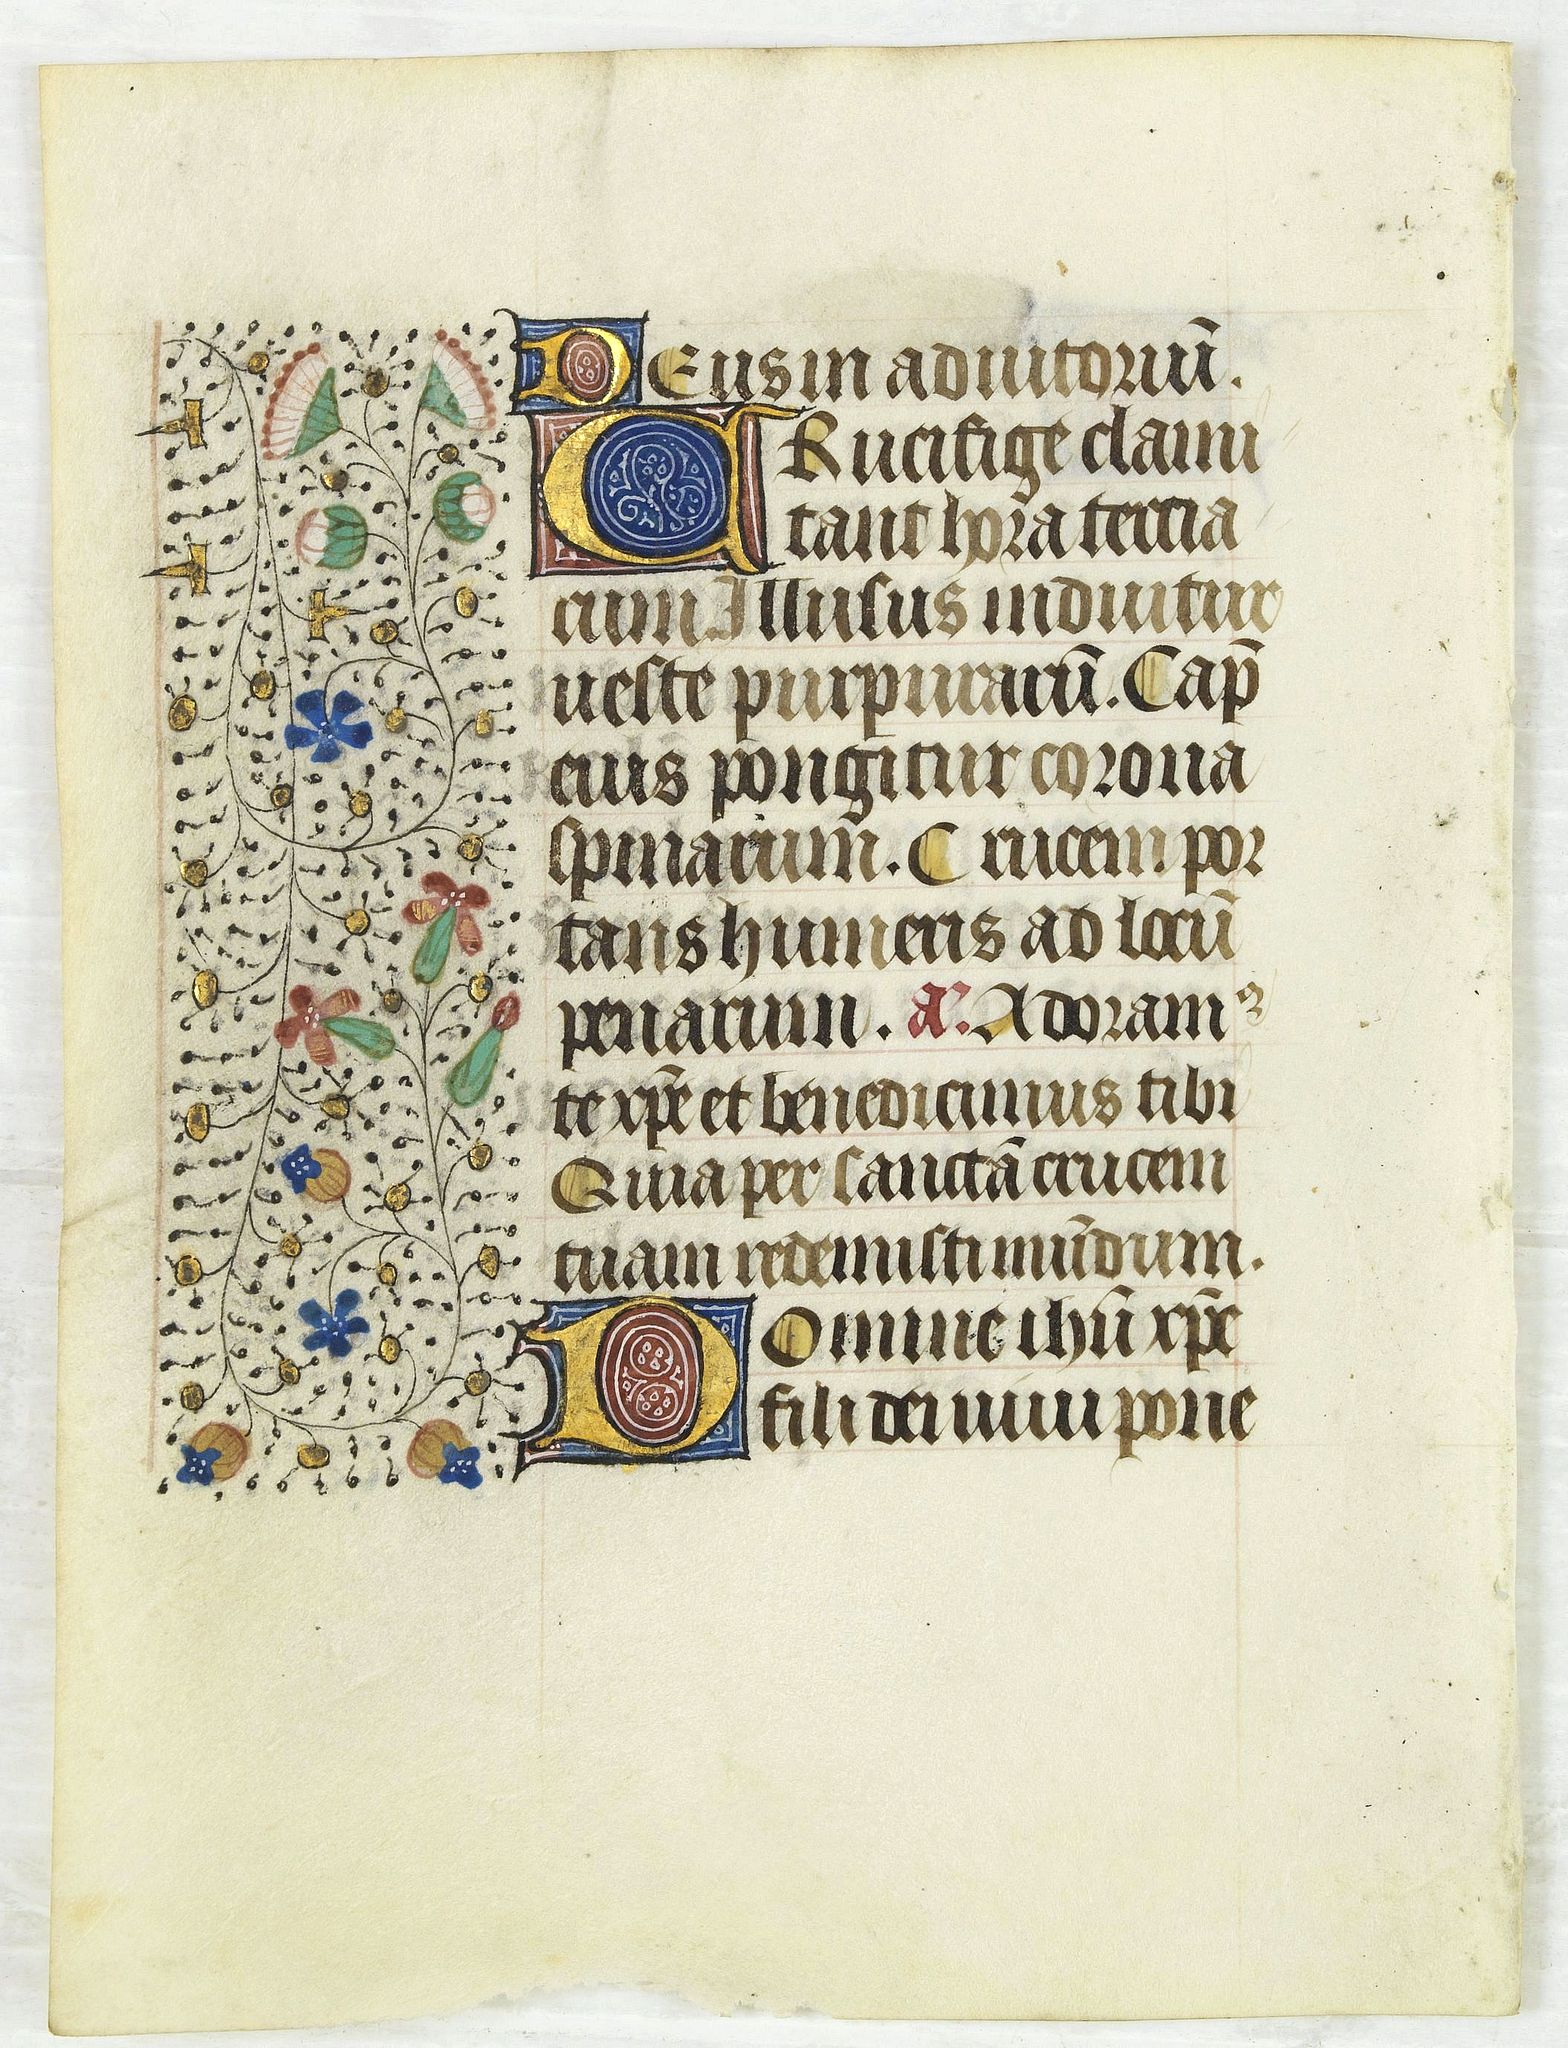 DEus in adiutoriū.
CRucifige clami
tant hora tercia
cum Illusus induitur
ueste purpurarū. Cap̄
eius pongitur corona
spinarum. Crucem por
tans humeris ad locū
penarum. a᷑. Adoramꝰ
te xp̄e et benedicimus tibi
Quia per sanctā crucem
tuam redemisti mūdum.
DOmine ihū xp̄e
fili dei uiui pone